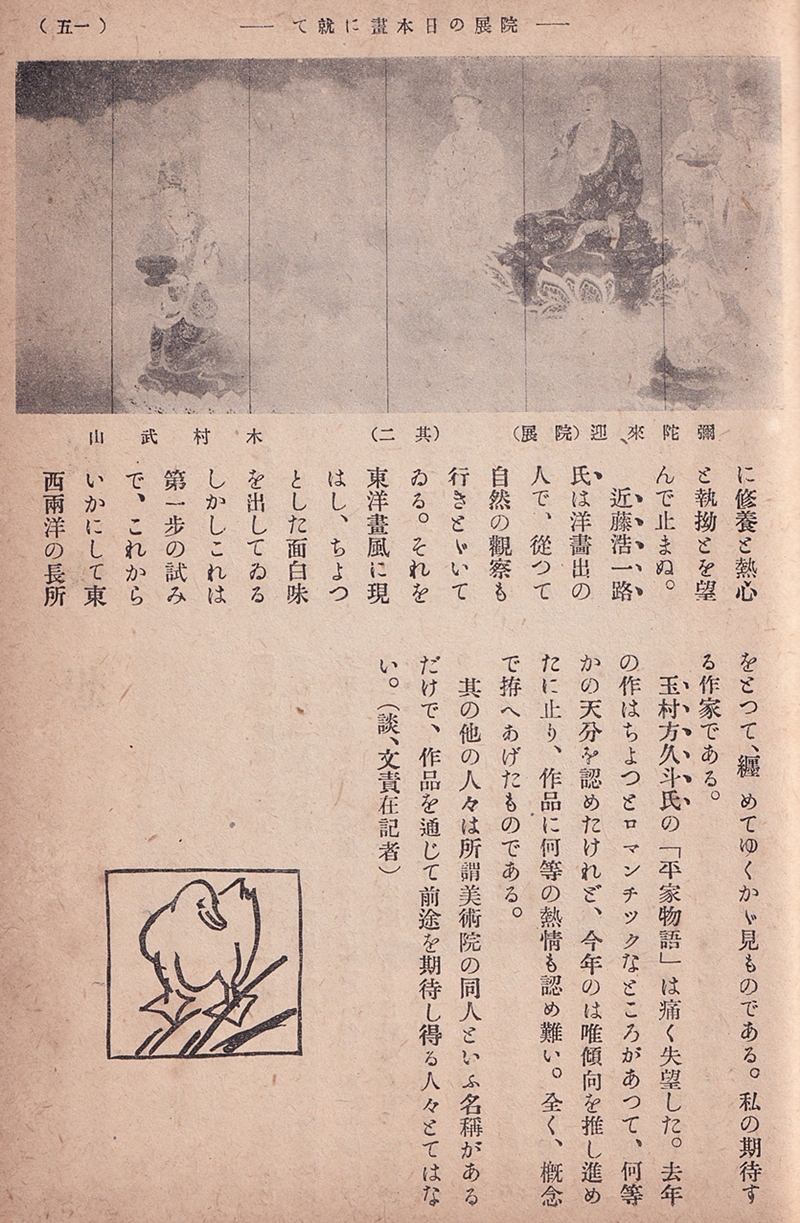 ― 院展の日本畫に就て ―
（一五）
彌陀來迎（院展）（其二）木村武山
に修養と熱心
と執拗とを望
んで止まぬ。
近藤浩一路
氏は洋畵出の
人で、從つて
自然の觀察も
行きとゞいて
ゐる。それを
東洋畫風に現
はし、ちよつ
とした面白味
を出してゐる
しかしこれは
第一步の試み
で、これから
いかにして東
西兩洋の長所
をとつて、纒めてゆくかゞ見ものである。私の期待す
る作家である。
玉村方久斗氏の「平家物語」は痛く失望した。去年
の作はちよつとロマンチックなところがあつて、何等
かの天分を認めたけれど、今年のは唯傾向を推し進め
たに止り、作品に何等の熱情も認め難い。全く、槪念
で拵へあげたものである。
其の他の人々は所謂美術院の同人といふ名稱がある
だけで、作品を通じて前途を期待し得る人々とてはな
い。（談、文責在記者）